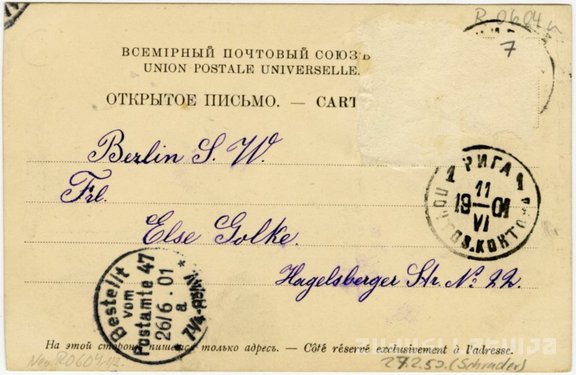 R 0604
7
ВСЕМІРНЫЙ ПОЧТОВЫЙ СОЮЗЪ
UNION POSTALE UNIVERSELLE.
ОТКРЫТОЕ ПИСЬМО. — CART
Berlin S. W.
Frl.
Else Golke.
Hagelsberger Str. No 22.
РИГА
11
19—01
VI
ПОЧТОВ. КОНТОРА
Bestellt
vom
Postamte 47
26/6. 01
На этой сторонѣ пишется только адресъ. — Côté réservé exclusivement à l'adresse.
(Schrader)